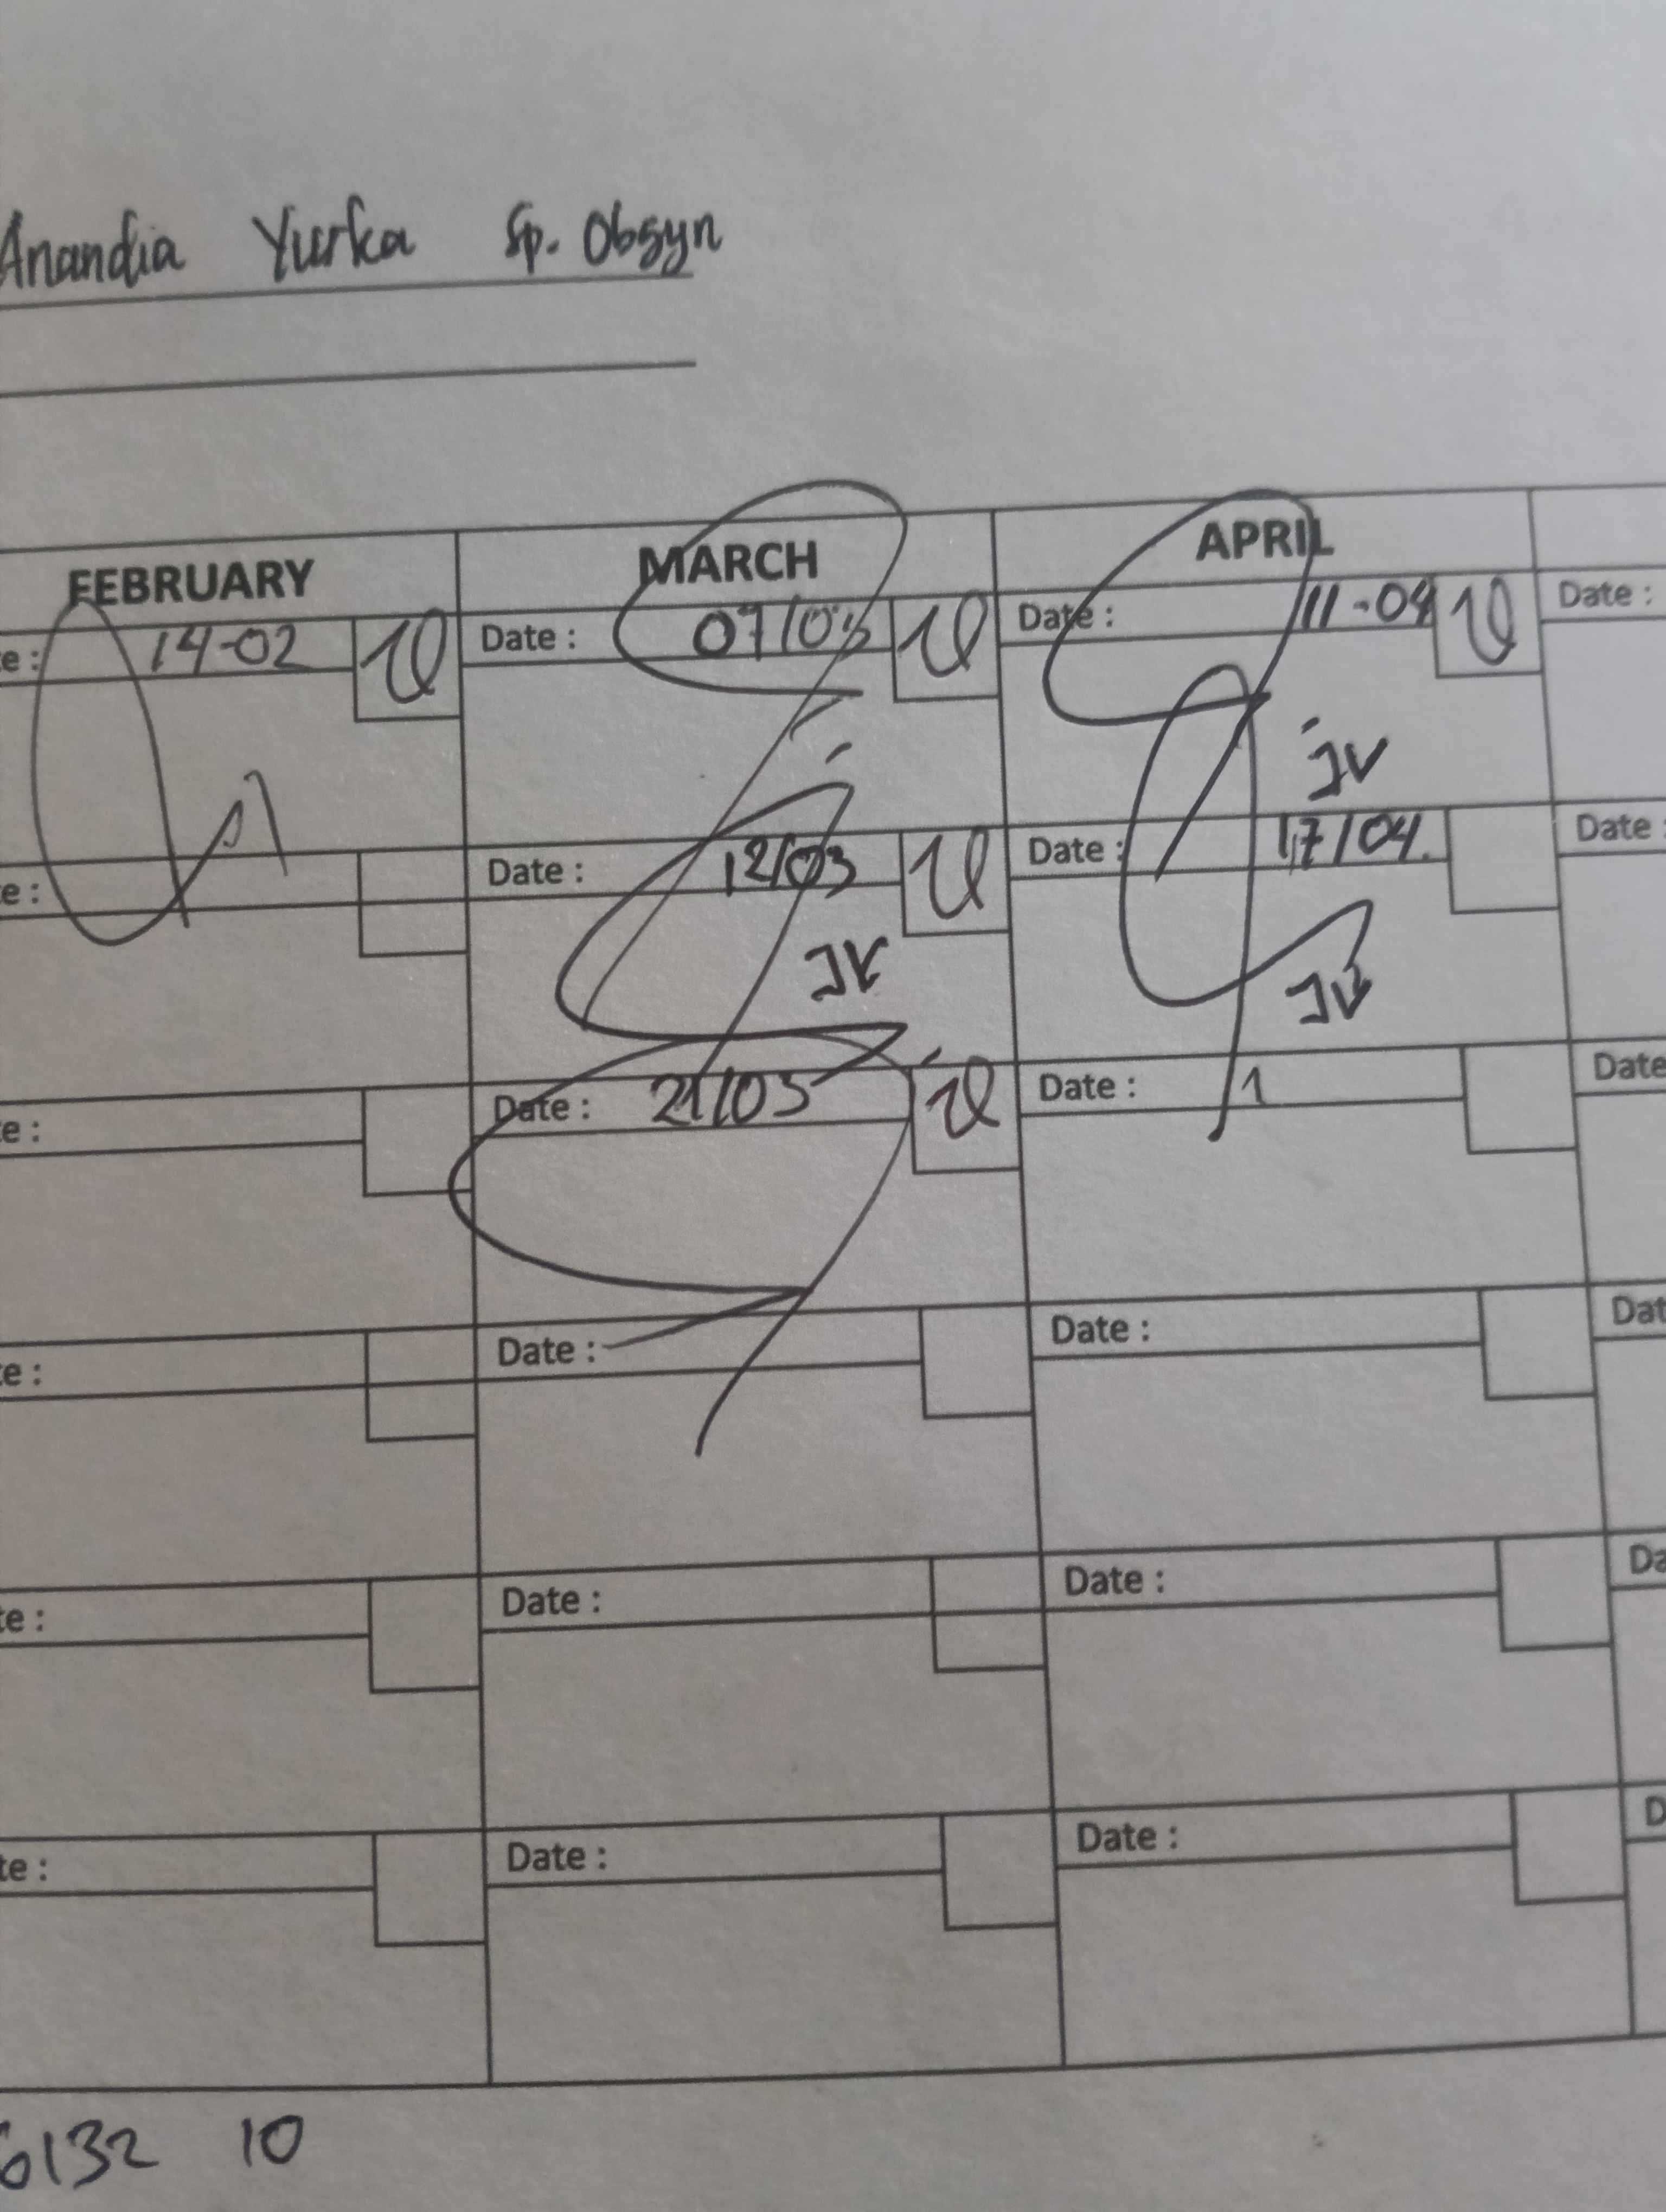 Anandia Yurka Sp. Obgyn
FEBRUARY MARCH APRIL
e: 14-02 Date: 07/03 Date: 11-04 Date:
e: Date: 12/03 Date: 17/04. Date:
e: Date: 21/03 Date: 1 Date
e: Date: Date: Dat
te: Date: Date: Da
te: Date: Date: D
6132 10